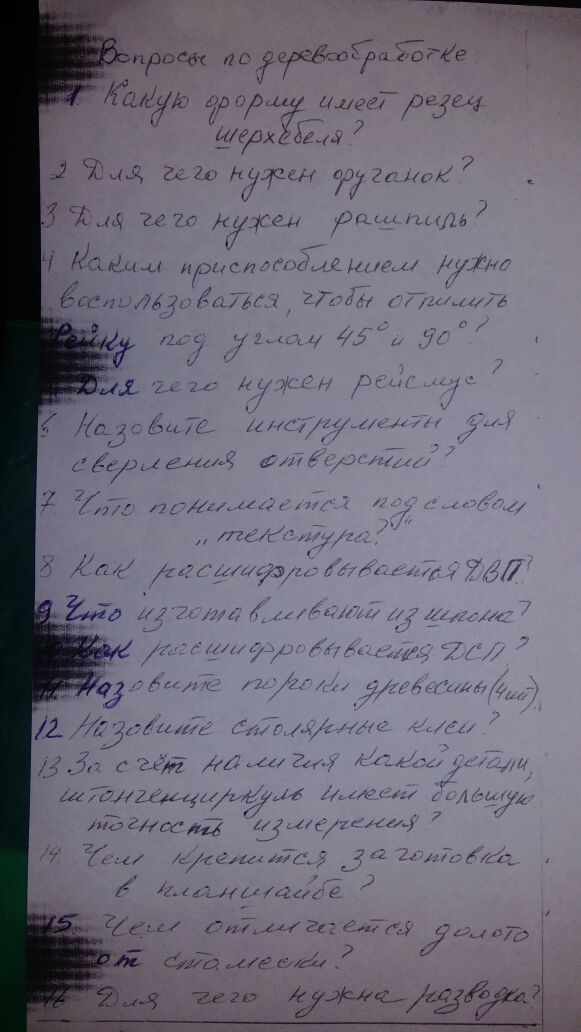 Вопросы по деревообработке
1 Какую форму имеет резец
шерхебеля?
2 Для чего нужен фуганок?
3 Для чего нужен рашпиль?
4 Каким приспособлением нужно
воспользоваться, чтобы отпилить
Рейку под углом 45° и 90°?
Для чего нужен рейсмус?
6 Назовите инструменты для
сверления отверстий?
7 Что понимается под словом
„текстура?"
8 Как расшифровывается ДВП?
9 Что изготавливают из шпона?
10 Как расшифровывается ДСП?
11 Назовите пороки древесины (4шт)
12 Назовите столярные клеи?
13 За счёт наличия какой детали,
штангенциркуль имеет большую
точность измерения?
14. Чем крепится заготовка
в планшайбе?
15 Чем отличается долото
от стамески?
16 Для чего нужна разводка?